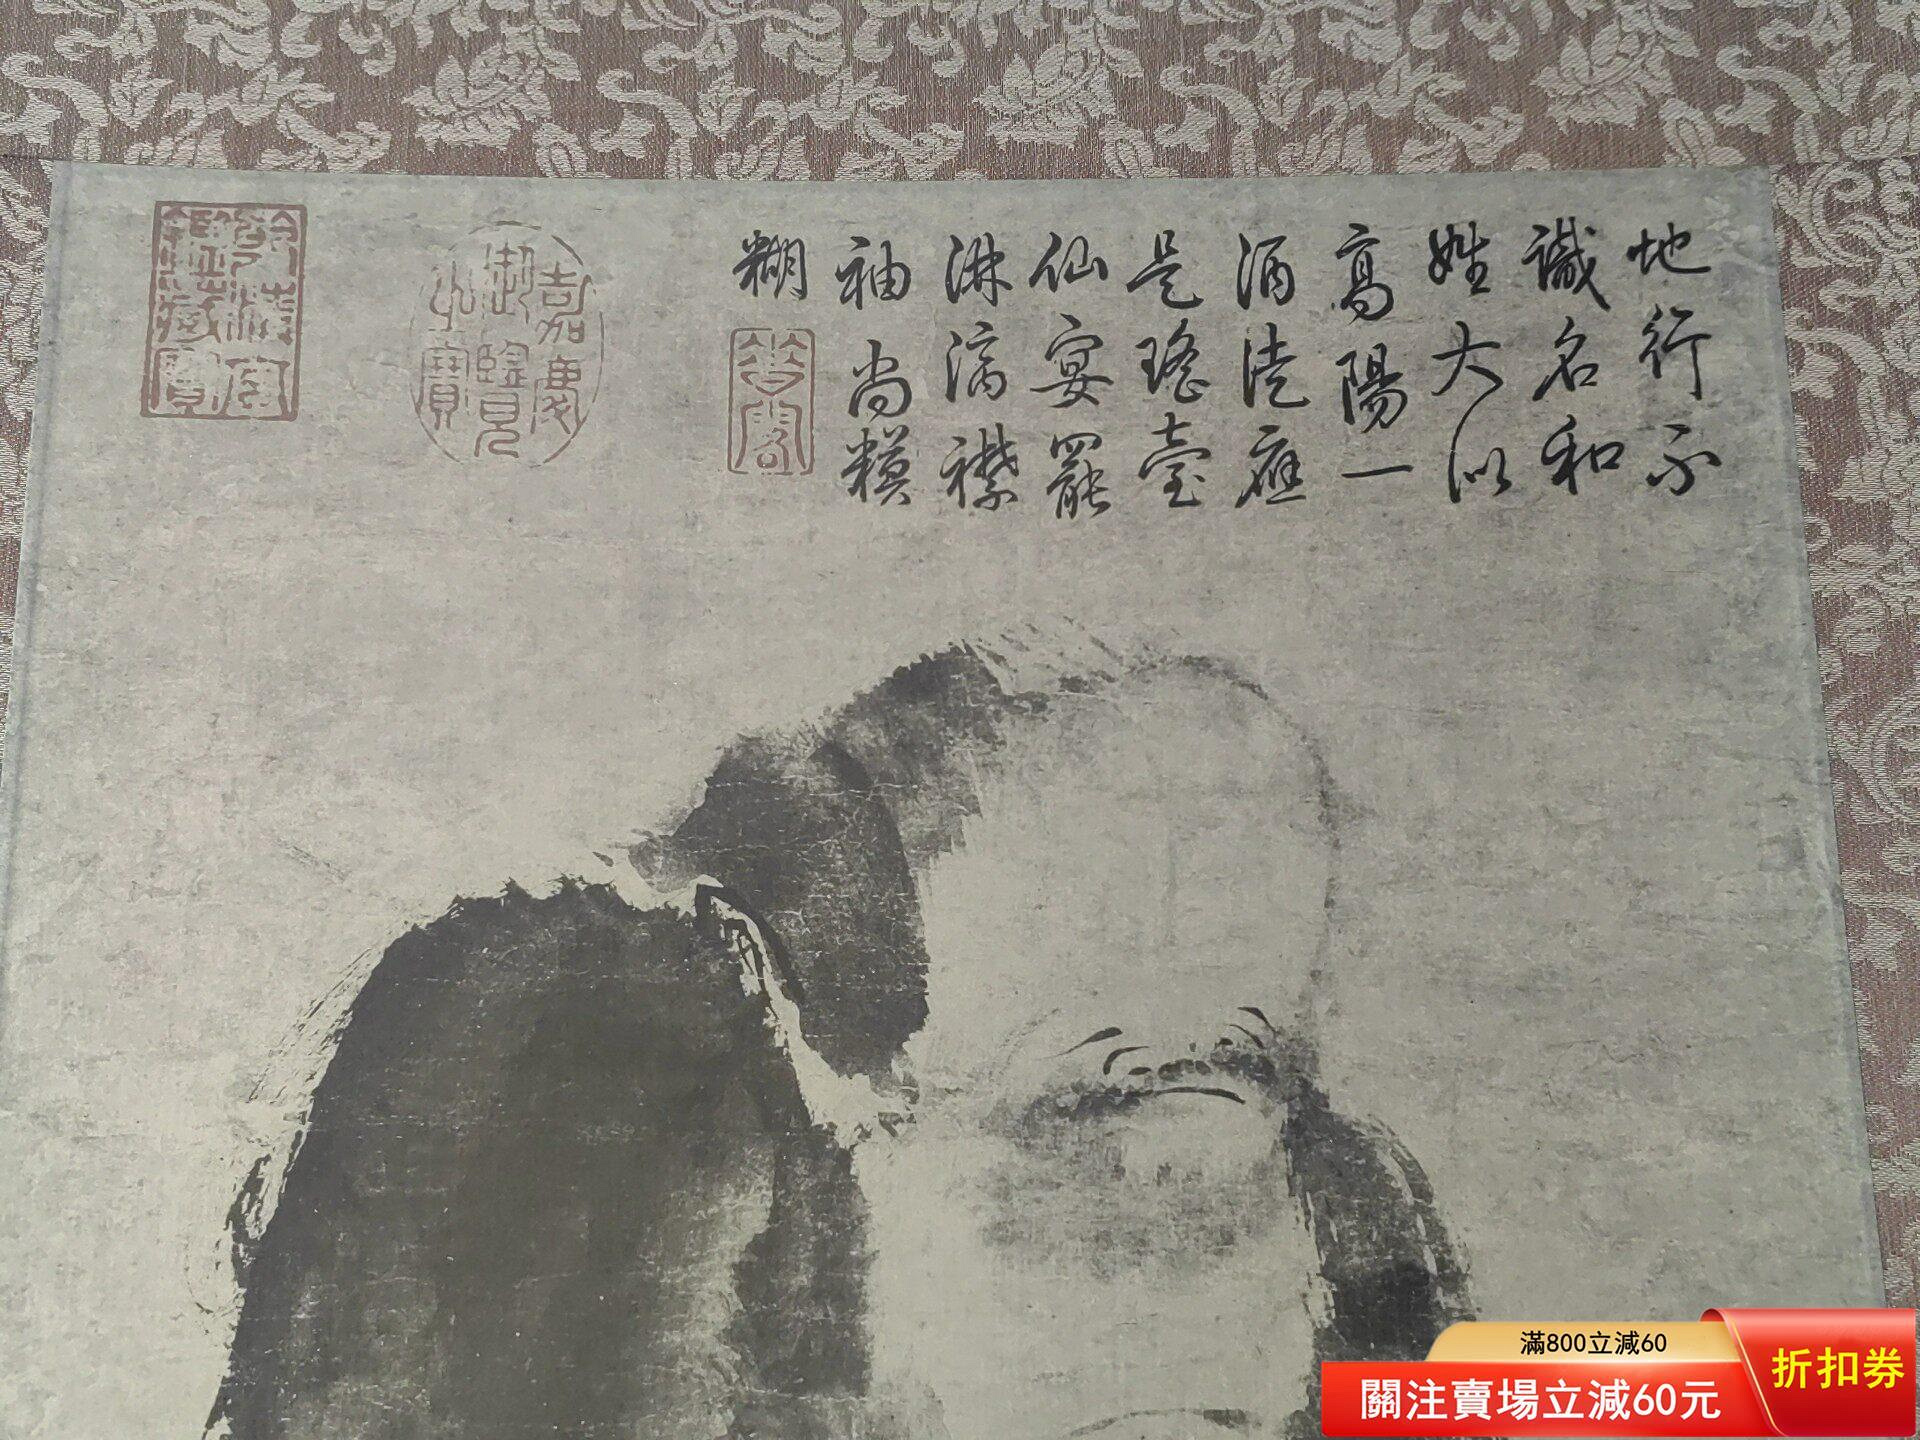 地行不
識名和
姓大似
高陽一
酒徒應
是瑤臺
仙宴罷
淋漓襟
袖尚糢
糊
嘉慶
御覽
之寶
鑑藏寶
滿800立減60
關注賣場立減60元
折扣券